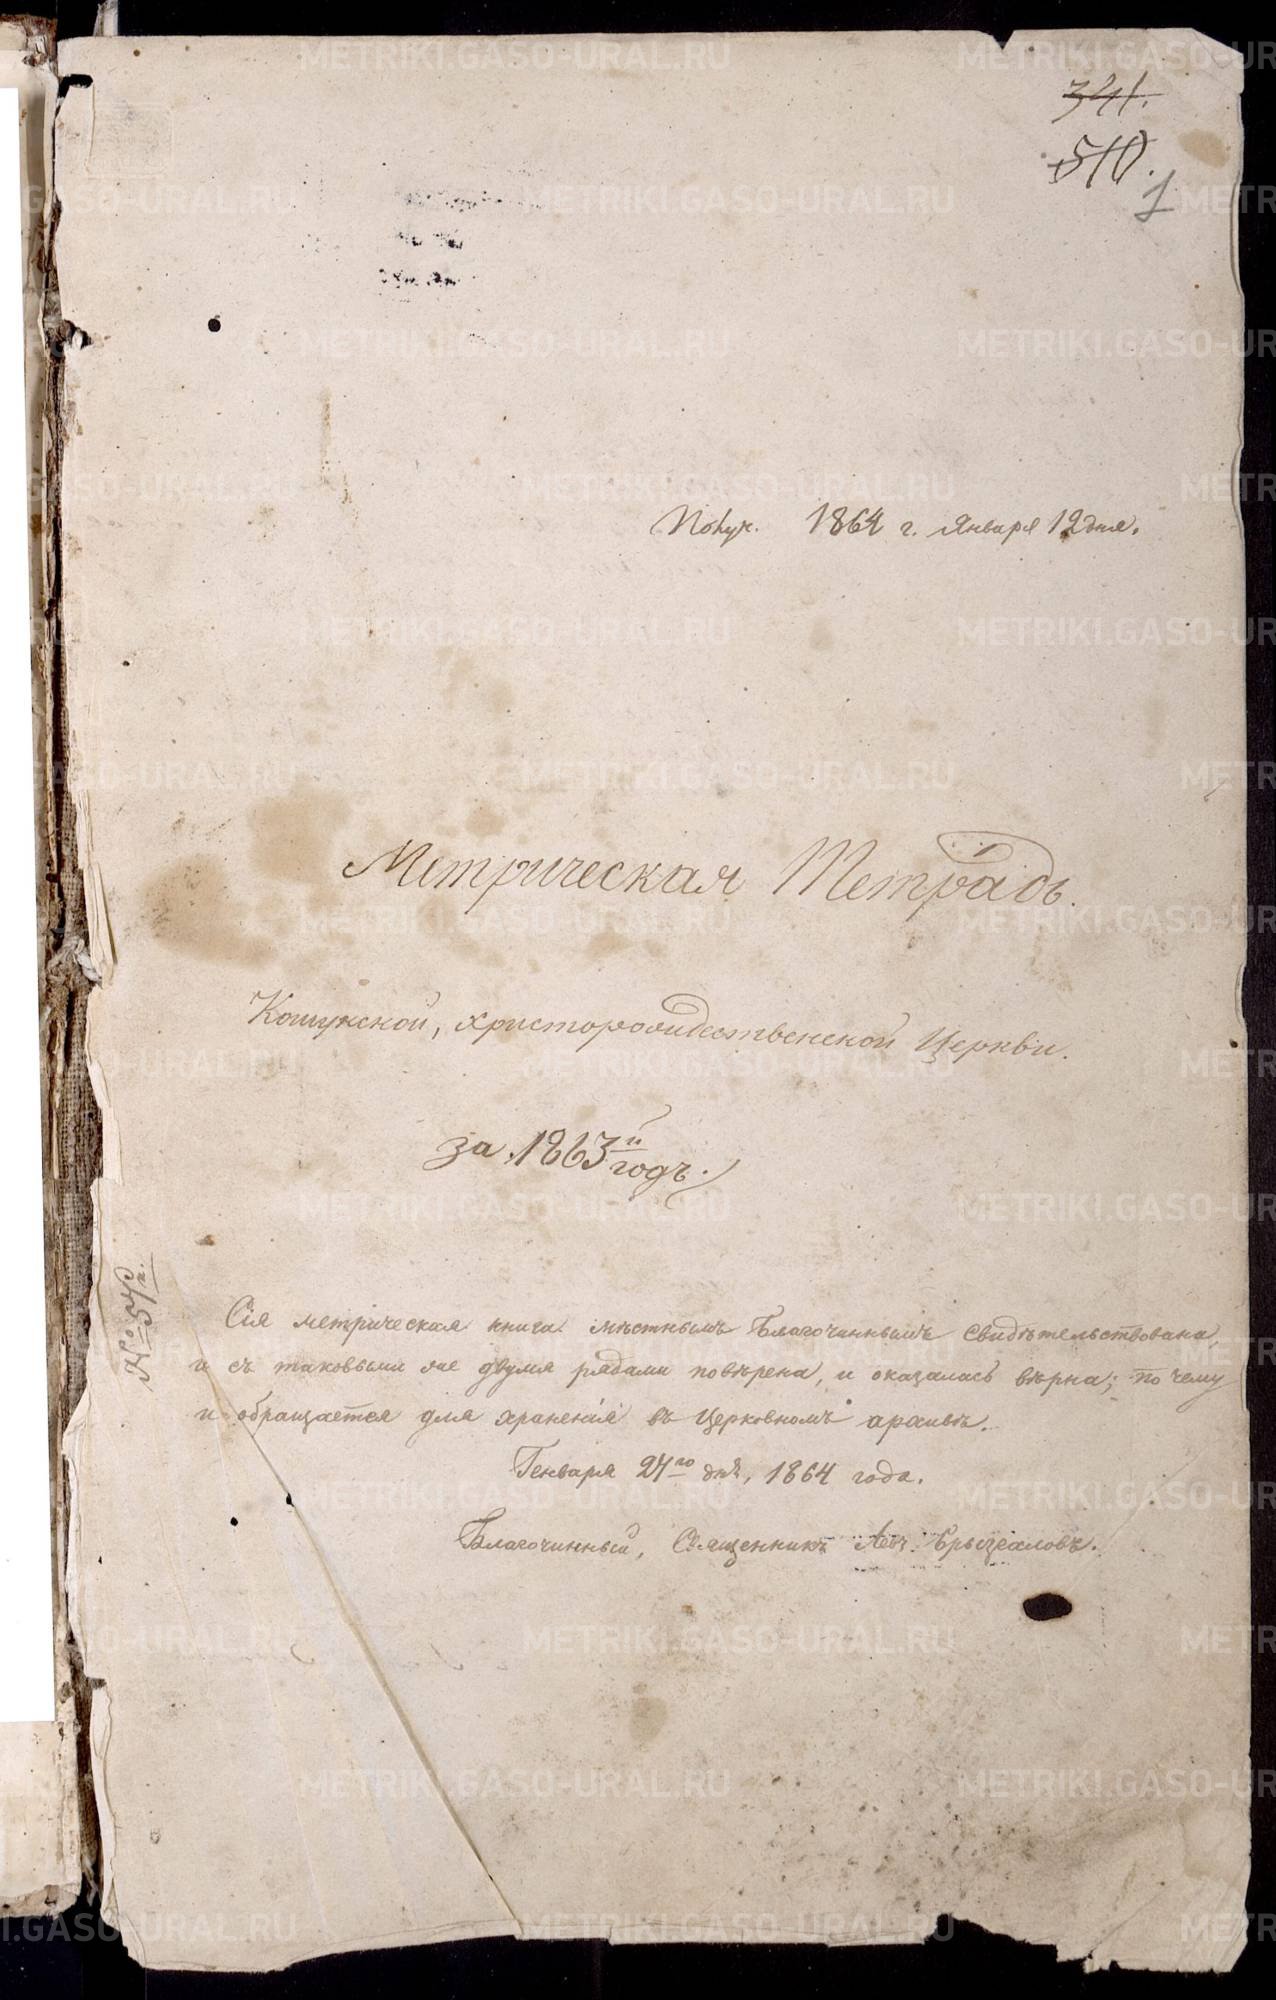 341.
510.
1
Получ. 1864 г. Января 12 дня.
Метрическая Тетрадь.
Кошукской, христорождественской Церкви.
за 1863й годъ.
№ 57
Сія метрическая книга мѣстнымъ Благочиннымъ свидѣтельствована,
и съ таковыми же двумя рядами повѣрена, и оказалась вѣрна; по чему
и обращается для храненія въ Церковномъ архивѣ.
Генваря 24го дня, 1864 года.
Благочинный, Священникъ
METRIKI.GASO-URAL.RU